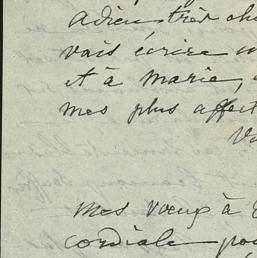 Adieu très che
vais écrire
et à Marie,
mes plus affect
mes vœux à
cordiale pou